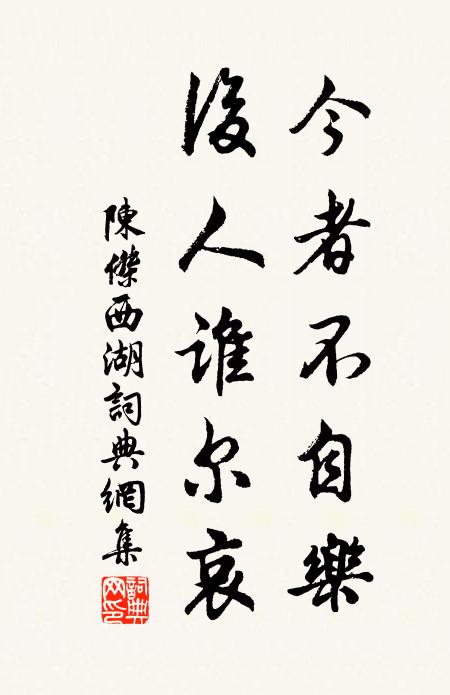 今者不自樂
後人誰尔哀
陳傑西湖詞典網集
詞典网印